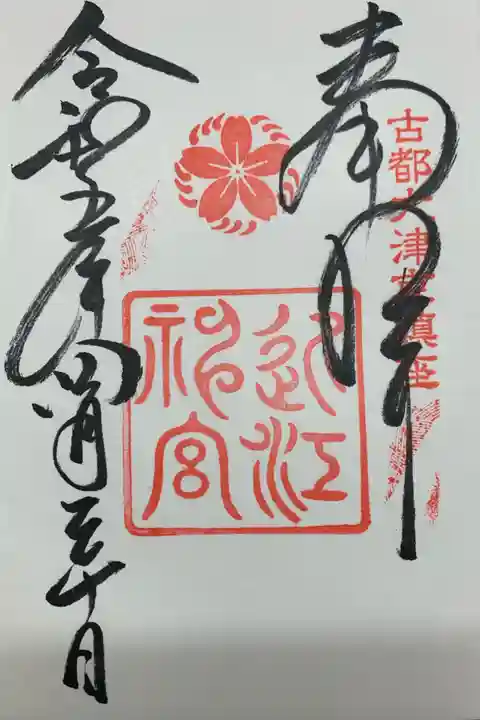 奉拝
古都大津宮鎮座
近江神宮
令和五年四月三十日